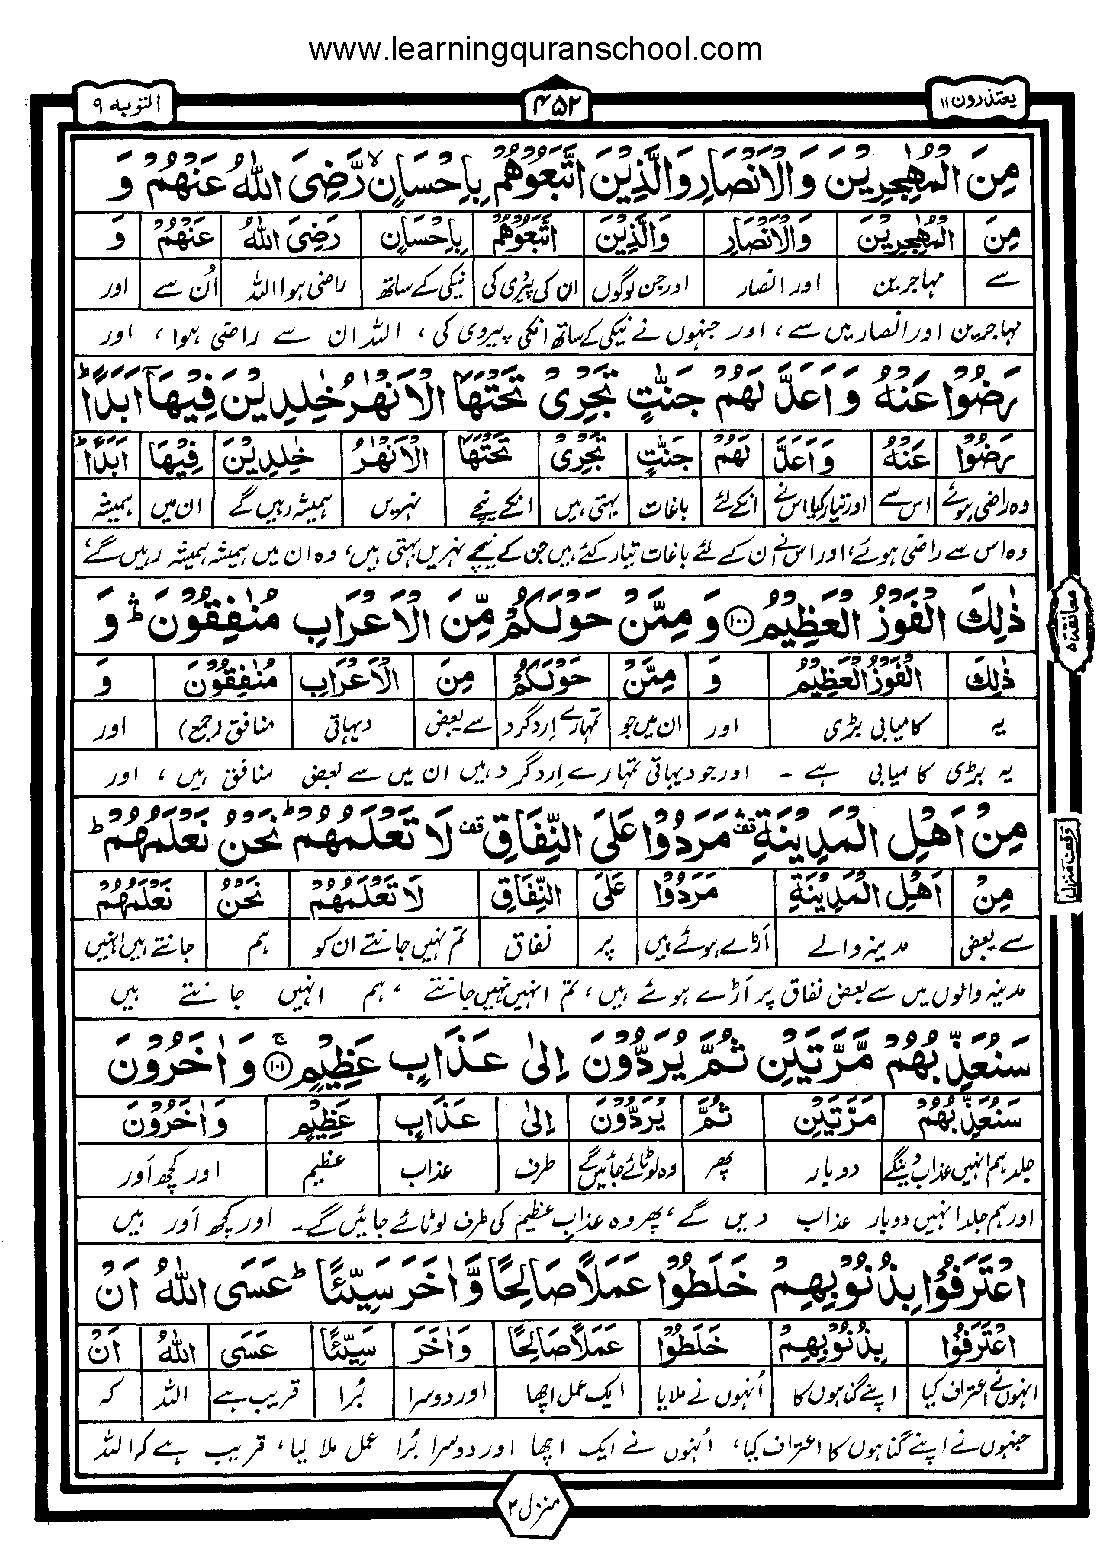 www.learningquranschool.com
یعتذرون ۱۱ ۴۵۲ التوبہ ۹
مِنَ الْمُهٰجِرِیْنَ وَالْاَنْصَارِ وَالَّذِیْنَ اتَّبَعُوْهُمْ بِاِحْسَانٍ ۙ رَّضِیَ اللّٰهُ عَنْهُمْ وَ
مِنَ الْمُهٰجِرِیْنَ وَالْاَنْصَارِ وَالَّذِیْنَ اتَّبَعُوْهُمْ بِاِحْسَانٍ رَضِیَ اللّٰهُ عَنْهُمْ وَ
سے مہاجرین اور انصار اور جن لوگوں ان کی پیروی کی نیکی کے ساتھ راضی ہوا اللہ اُن سے اور
مہاجرین اور انصار میں سے، اور جنہوں نے نیکی کے ساتھ انکی پیروی کی، اللہ ان سے راضی ہوا، اور
رَضُوْا عَنْهُ وَاَعَدَّ لَهُمْ جَنّٰتٍ تَجْرِیْ تَحْتَهَا الْاَنْهٰرُ خٰلِدِیْنَ فِیْهَاۤ اَبَدًا ؕ
رَضُوْا عَنْهُ وَاَعَدَّ لَهُمْ جَنّٰتٍ تَجْرِیْ تَحْتَهَا الْاَنْهٰرُ خٰلِدِیْنَ فِیْهَا اَبَدًا ؕ
وہ راضی ہوئے اس سے اور تیار کیا اس نے انکے لئے باغات بہتی ہیں انکے نیچے نہریں ہمیشہ رہیں گے ان میں ہمیشہ
وہ اس سے راضی ہوئے، اور اس نے ان کے لئے باغات تیار کئے ہیں جن کے نیچے نہریں بہتی ہیں، وہ ان میں ہمیشہ ہمیشہ رہیں گے،
ذٰلِكَ الْفَوْزُ الْعَظِیْمُ ﴿۱۰۰﴾ وَ مِمَّنْ حَوْلَكُمْ مِّنَ الْاَعْرَابِ مُنٰفِقُوْنَ ۛؕ وَ
معانقہ ۵
ذٰلِكَ الْفَوْزُ الْعَظِیْمُ وَ مِمَّنْ حَوْلَكُمْ مِنَ الْاَعْرَابِ مُنٰفِقُوْنَ وَ
یہ کامیابی بڑی اور ان میں جو تمہارے اردگرد سے بعض دیہاتی منافق (جمع) اور
یہ بڑی کامیابی ہے ۔ اور جو دیہاتی تمہارے اردگرد ہیں ان میں سے بعض منافق ہیں، اور
مِنْ اَهْلِ الْمَدِیْنَةِ ۛؔ مَرَدُوْا عَلَی النِّفَاقِ ۫ لَا تَعْلَمُهُمْ ؕ نَحْنُ نَعْلَمُهُمْ ؕ
مِنْ اَهْلِ الْمَدِیْنَةِ مَرَدُوْا عَلَی النِّفَاقِ لَا تَعْلَمُهُمْ نَحْنُ نَعْلَمُهُمْ
سے بعض مدینہ والے اَڑے ہوئے ہیں پر نفاق تم نہیں جانتے ان کو ہم جانتے ہیں انہیں
مدینہ والوں میں سے بعض نفاق پر اَڑے ہوئے ہیں، تم انہیں نہیں جانتے، ہم انہیں جانتے ہیں
سَنُعَذِّبُهُمْ مَّرَّتَیْنِ ثُمَّ یُرَدُّوْنَ اِلٰی عَذَابٍ عَظِیْمٍ ۚ﴿۱۰۱﴾ وَ اٰخَرُوْنَ
سَنُعَذِّبُهُمْ مَرَّتَیْنِ ثُمَّ یُرَدُّوْنَ اِلٰی عَذَابٍ عَظِیْمٍ وَاٰخَرُوْنَ
جلد ہم انہیں عذاب دینگے دو بار پھر وہ لوٹائے جائیں گے طرف عذاب عظیم اور کچھ اَور
اور ہم جلد انہیں دوبار عذاب دیں گے، پھر وہ عذابِ عظیم کی طرف لوٹائے جائیں گے۔ اور کچھ اَور ہیں
اعْتَرَفُوْا بِذُنُوْبِهِمْ خَلَطُوْا عَمَلًا صَالِحًا وَّاٰخَرَ سَیِّئًا ؕ عَسَی اللّٰهُ اَنْ
اعْتَرَفُوْا بِذُنُوْبِهِمْ خَلَطُوْا عَمَلًا صَالِحًا وَاٰخَرَ سَیِّئًا عَسَی اللّٰهُ اَنْ
انہوں نے اعتراف کیا اپنے گناہوں کا اُنہوں نے ملایا ایک عمل اچھا اور دوسرا بُرا قریب ہے اللہ کہ
جنہوں نے اپنے گناہوں کا اعتراف کیا، اُنہوں نے ایک اچھا اور دوسرا بُرا عمل ملا لیا، قریب ہے کہ اللہ
منزل ۲